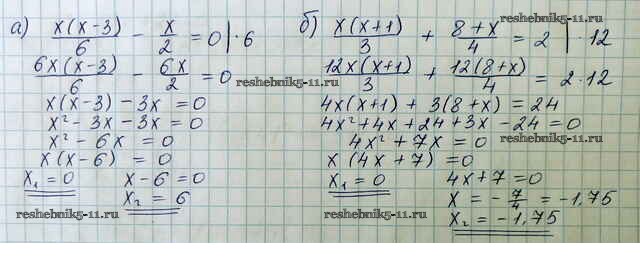 а) x(x-3)/6 - x/2 = 0 |·6
6x(x-3)/6 - 6x/2 = 0
x(x-3) - 3x = 0
x² - 3x - 3x = 0
x² - 6x = 0
x(x-6) = 0
x₁ = 0 x-6 = 0
x₂ = 6
б) x(x+1)/3 + (8+x)/4 = 2 |·12
12x(x+1)/3 + 12(8+x)/4 = 2·12
4x(x+1) + 3(8+x) = 24
4x² + 4x + 24 + 3x - 24 = 0
4x² + 7x = 0
x(4x+7) = 0
x₁ = 0 4x+7 = 0
x = -7/4 = -1,75
x₂ = -1,75
reshebnik5-11.ru
reshebnik5-11.ru
reshebnik5-11.ru
reshebnik5-11.ru
reshebnik5-11.ru
reshebnik5-11.ru